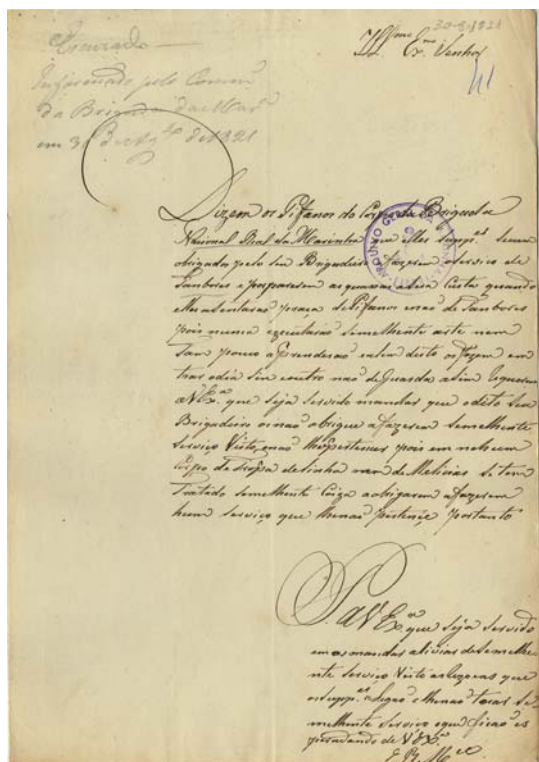 30-8-1821
Ill.mo Ex.mo Senhor
Escuzado
Informado pelo Comm
da Brigada da Mar.a
em 31 de Ag.to de 1821
Dizem os Pifanos do Corpo da Brigada
Nacional Real da Marinha que elles supp.es serem
obrigados pelo seu Brigadeiro a fazerem o serviço de
Tambores a porparerem as sua custa quando
elles asentarão praça de Pifanos e não de Tambores
pois nunca ezecutarão semelhente arte nem
tam pouco aprenderão e alem disto os fazem em
trar o dia sim e outro não de Guarda asim Requerem
a V Ex.a que seja servido mandar que o dito seu
Brigadeiro os não obrigue a fazerem semelhente
serviço Visto, e não lhe pertemser pois em nehum
Corpo de Tropa de Linha nem de Melicias se tem
Tratado semelhente Coiza a obrigarem a fazerem
hum serviço que lhe não pertençe portanto
P. a V Ex.a que seja servido
em os mandar aliviar de semelhe
nte serviço Visto as rezoens que
os supp.es alegão e lhe não tocar se
melhente serviço o que ficão es
perando de V. Ex.a
E. R. M.ce